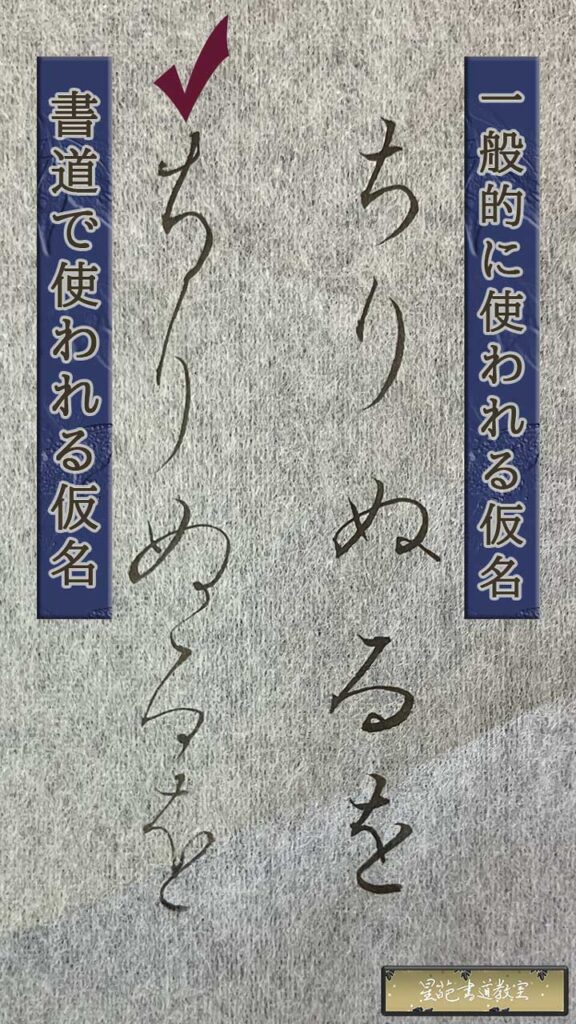 一般的に使われる仮名
ちりぬるを
ちりぬるを
書道で使われる仮名
星苑書道教室